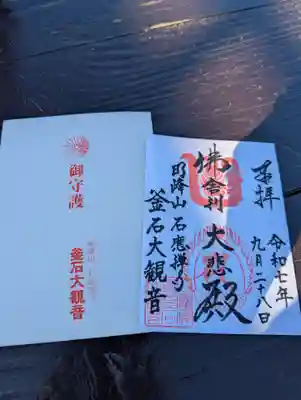 御守護
釜石大観音
奉拝
令和七年
九月二十八日
佛舎利
大悲殿
明峰山 石應禅寺
釜石大観音